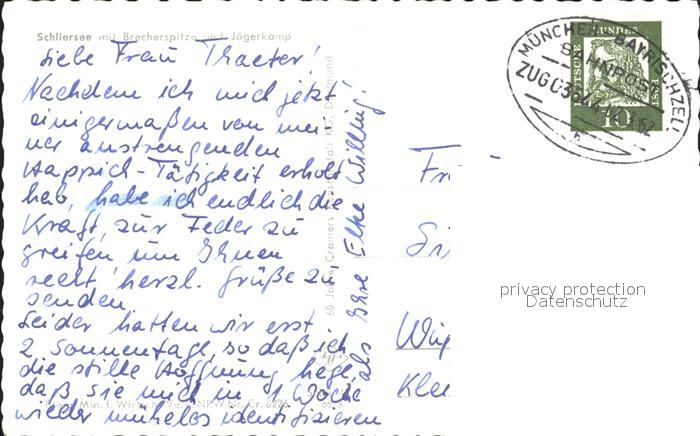 Schliersee mit Brecherspitze und Jägerkamp
Liebe Frau Thaeter!
Nachdem ich mich jetzt
einigermaßen von mei-
ner anstrengenden
Happich-Tätigkeit erholt
hab, habe ich endlich die
Kraft, zur Feder zu
greifen um Ihnen
recht herzl. Grüße zu
senden.
Leider hatten wir erst
2 Sonnentage, so daß ich
die stille Hoffnung hege,
daß sie mich in 1 Woche
wieder mühelos identifizieren
als Ihre Elke Willing!
60 Jahre Cramers Dortmund
Min. f. Wirtsch. Verk. NRW Nr. Cr.
Fr
Wup
Kle
MÜNCHEN-BAYRISCHZELL
BAHNPOST
ZUG
DEUTSCHE BUNDESPOST
10
privacy protection
Datenschutz